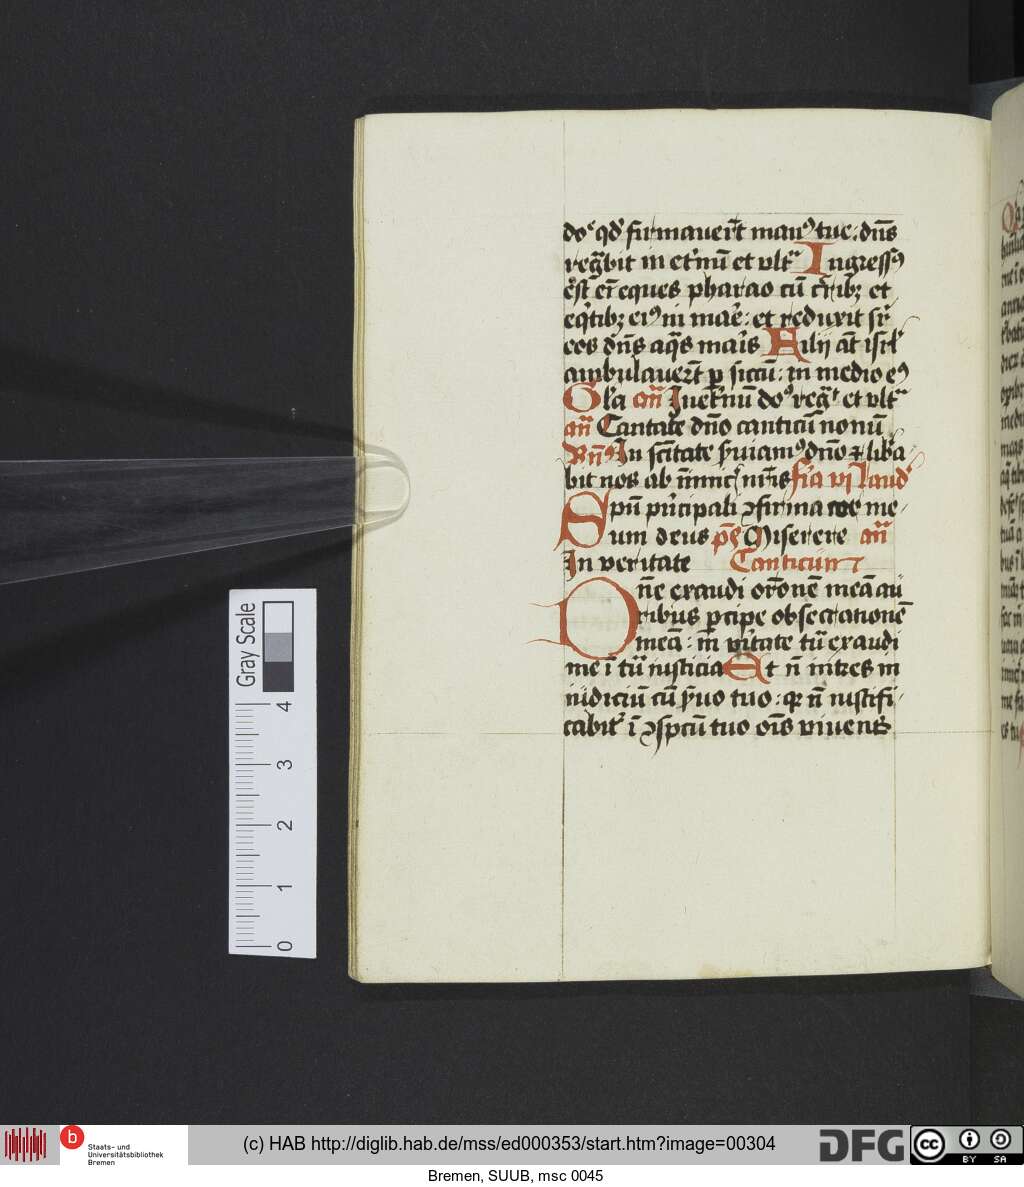 do᷒ qd᷒ firmauer̄t man᷒ tue. dn̄s
regͣbit in et᷒nū et vlt᷒ Ingress᷒
ē st em̄ eques pharao cū cr̄ribꝫ et
eqͥtibꝫ ei᷒ in mar̄e : et reduxit sr̄
eos dn̄s aqͣs mar̄is Filij aūt isrl̄
ambulauer̄t ꝑ siccū : in medio e᷒
Gl̄a an̄ In et᷒nū do᷒ regͣt et vlt᷒
an̄ Cantate dn̄o canticū nouū
In sc̄titate s̄uiam᷒ dn̄o ⁊ lib᷒a
bit nos ab inimicꝭ nr̄is fīa vj laud᷒
Spū pͥncipali ꝯfirma me
um deus pͣꝭ Miserere an̄
In veritate Canticum
Dn̄e exaudi or̄onē meā au
ribus ꝑcipe obsecrationē
meā : in v̄itate tū exaudi
me ī tū iusticia Et nō intres in
iudiciū cū s̄uo tuo : qꝛ nō iustifi
cabit᷒ ī ꝯspcū tuo om̄s viuens
Gray Scale
4
3
2
1
0
b Staats- und
Universitätsbibliothek
Bremen
(c) HAB http://diglib.hab.de/mss/ed000353/start.htm?image=00304
DFG
cc BY SA
Bremen, SUUB, msc 0045